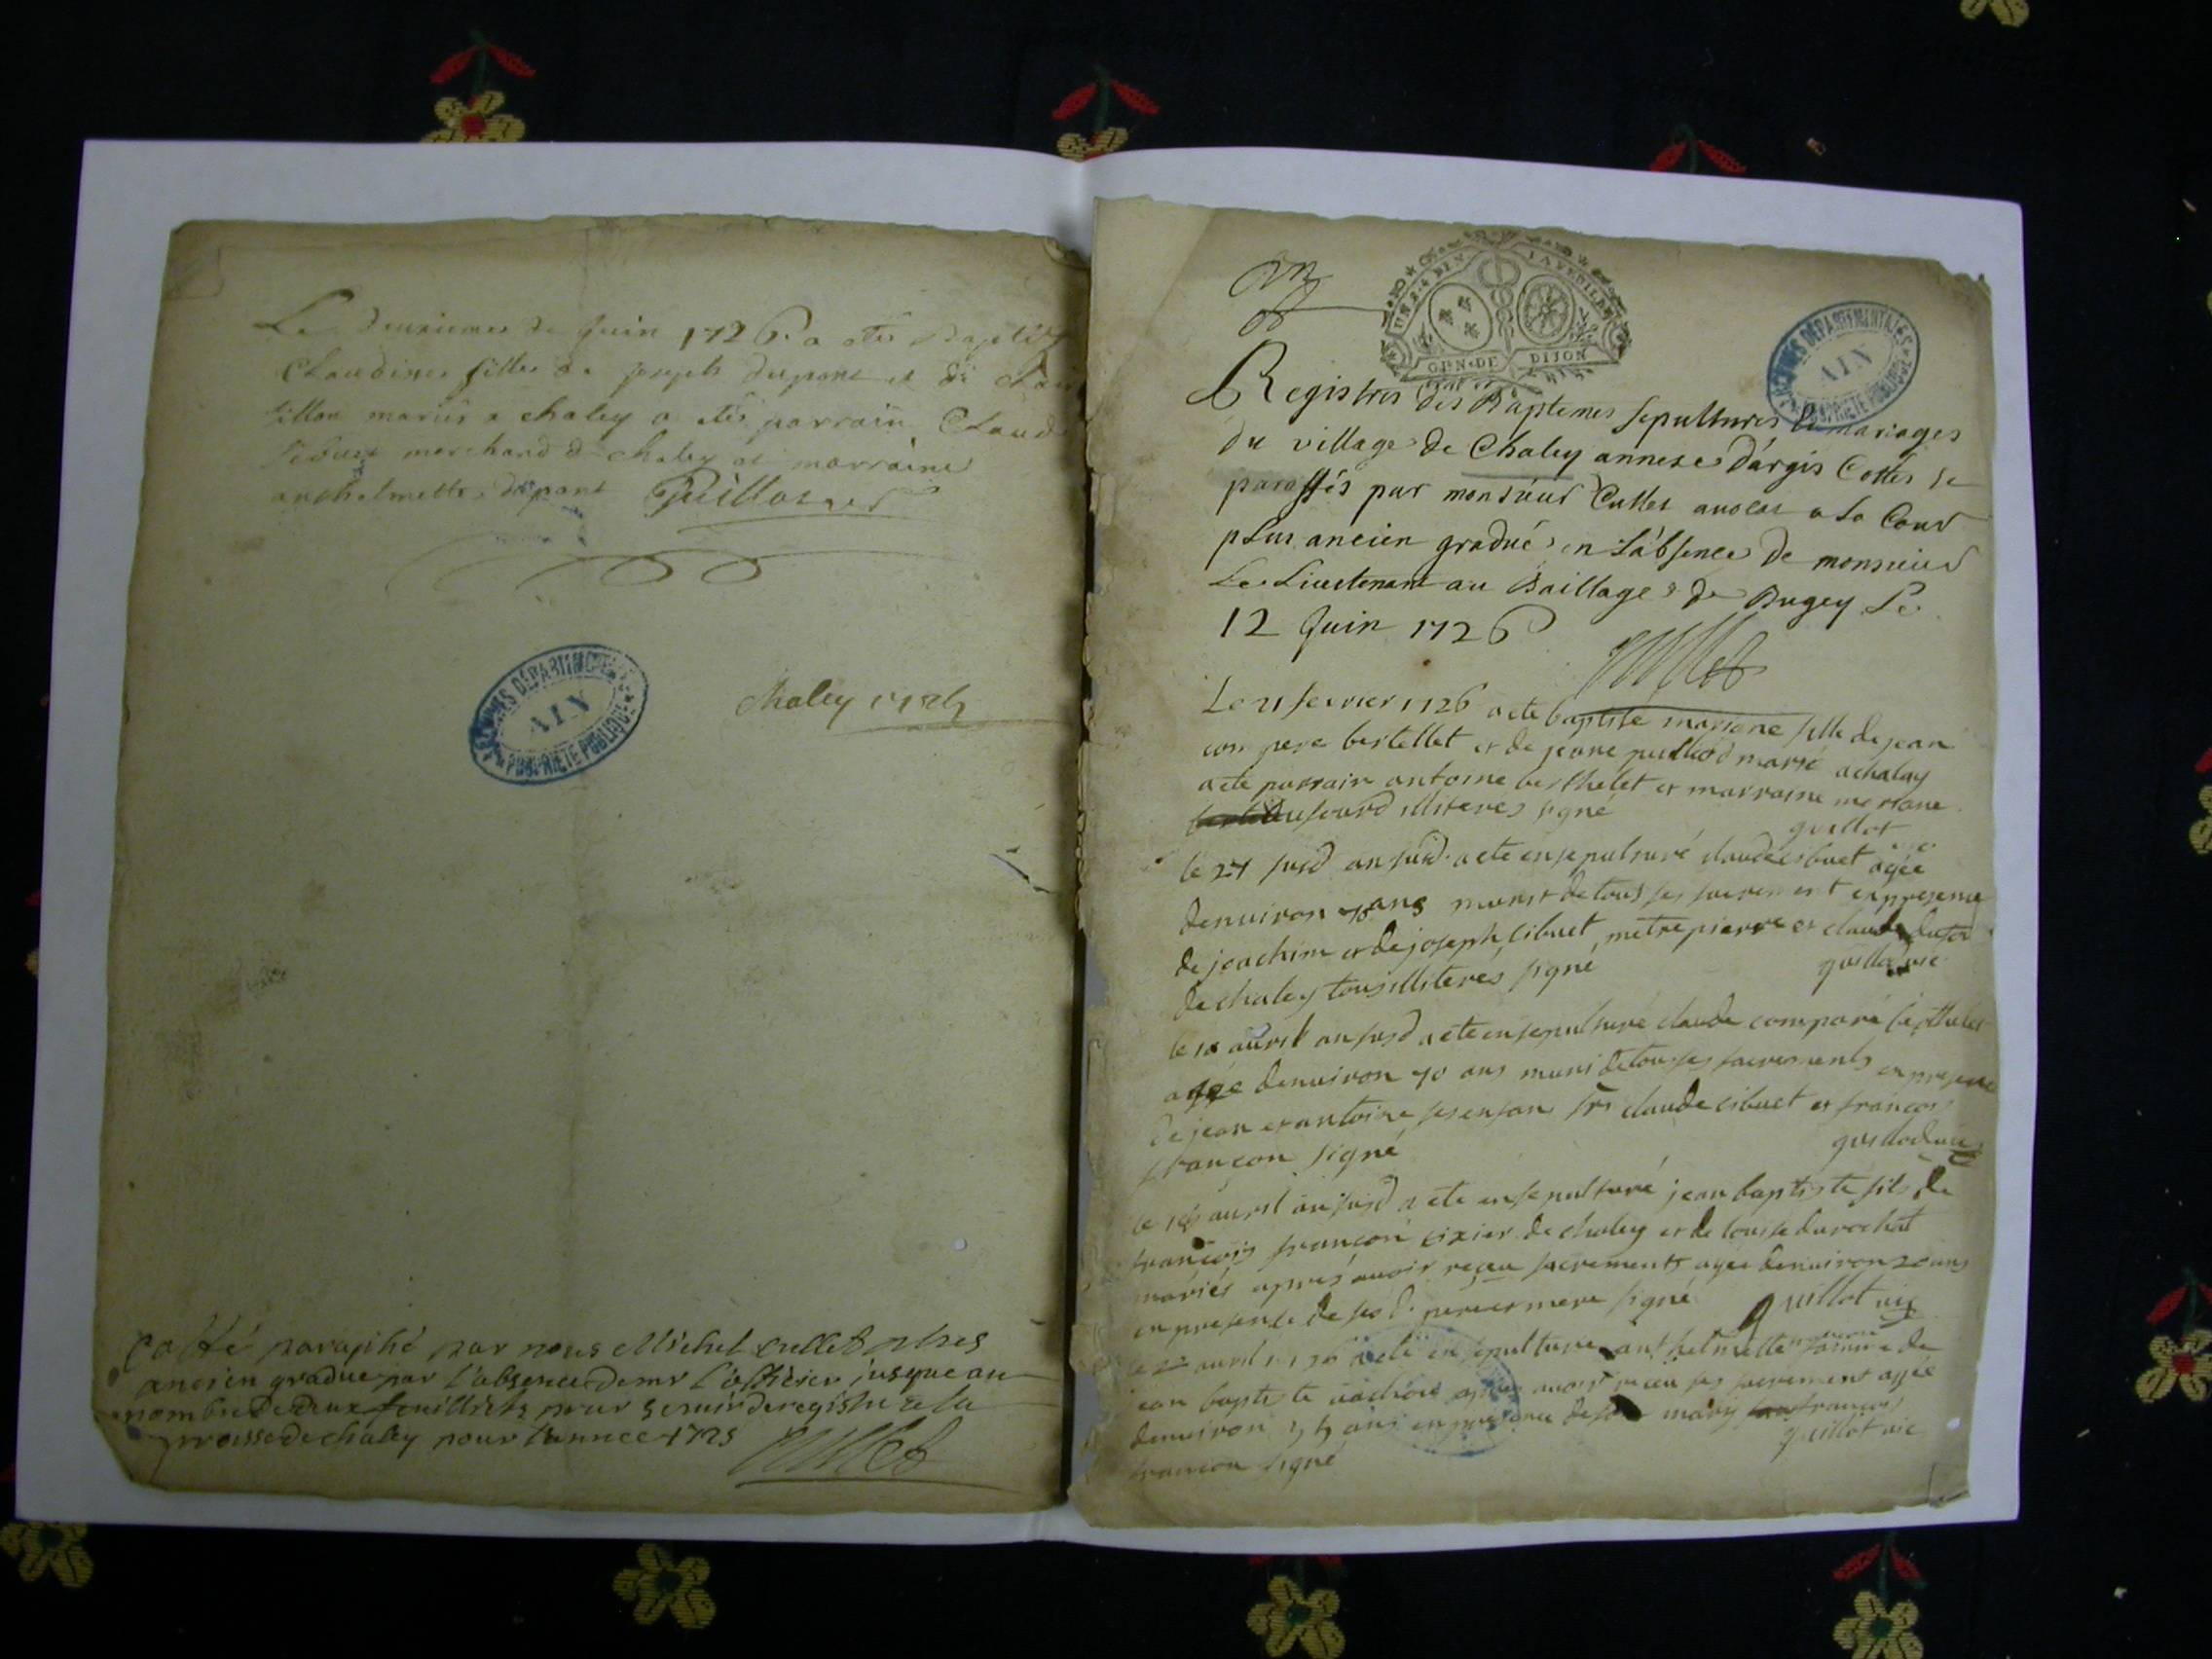 Le deuxieme de Juin 1726 a etés Baptisé
Claudine fille de joseph dupont et de
mariés a chaley a etés parrain Claude
marchand de chaley et marraine
anthelmette dupont Guillot
chaley 1726
ARCHIVES DÉPARTEMENTALES
AIN
PROPRIÉTÉ PUBLIQUE
Cotté paraphé par nous Michel Cullet plus
ancien gradue par l'absence de mr l'officier jusque au
nombre de deux feuillets pour servir de registre a la
parroisse de chaley pour l'annee 1725
Cullet
GEN. DE DIJON
ARCHIVES DÉPARTEMENTALES
AIN
PROPRIÉTÉ PUBLIQUE
Registres des Baptemes sepultures et mariages
du village de Chaley annexe d'argis Cottés et
paraffés par monsieur Cullet avocat a la Cour
plus ancien gradué en l'absence de monsieur
Le Lieutenant au Bailliage de Bugey Le
12 Juin 1726
Cullet
Le 21 fevrier 1726 a ete baptise mariane fille de jean
com pere bertellet et de jeane puillod marié a chaley
a ete parrain antoine berthelet et marraine mariane
illiteres signé
guillot
le 27 susd an susd a ete ensepulturé claude cibuet agée
denviron 70 ans munit de tous ses sacrement en presence
de joachim et de joseph cibuet, metre pierre et claude
de chaley tous illiteres signé guillot vic
le 10 auril an susd a ete ensepulturé claude comparé berthelet
agée denviron 70 ans muni de tous ses sacrements en presence
de jean et antoine ses enfans claude cibuet et francois
françon signé guillot vic
le 16 auril an susd a ete ensepulturé jean baptiste fils de
francois françon de chaley et de louise durochat
mariés aprés avoir reçeu sacrements agée denviron 20 ans
en presence de ses d. pere et mere signé guillot vic
le auril 1726 a eté ensepulturé anthelmette femme de
jean baptiste apres avoir receu ses sacrement agée
denviron ans en presence de son mary francois
françon signé guillot vic